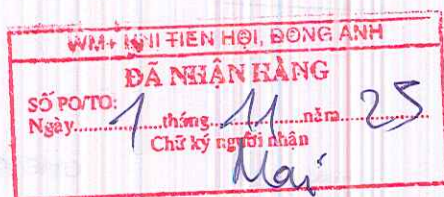 WM+ TIÊN HỘI, ĐÔNG ANH
ĐÃ NHẬN HÀNG
SỐ PO/TO:
Ngày 1 tháng 11 năm 25
Chữ ký người nhận
Mai